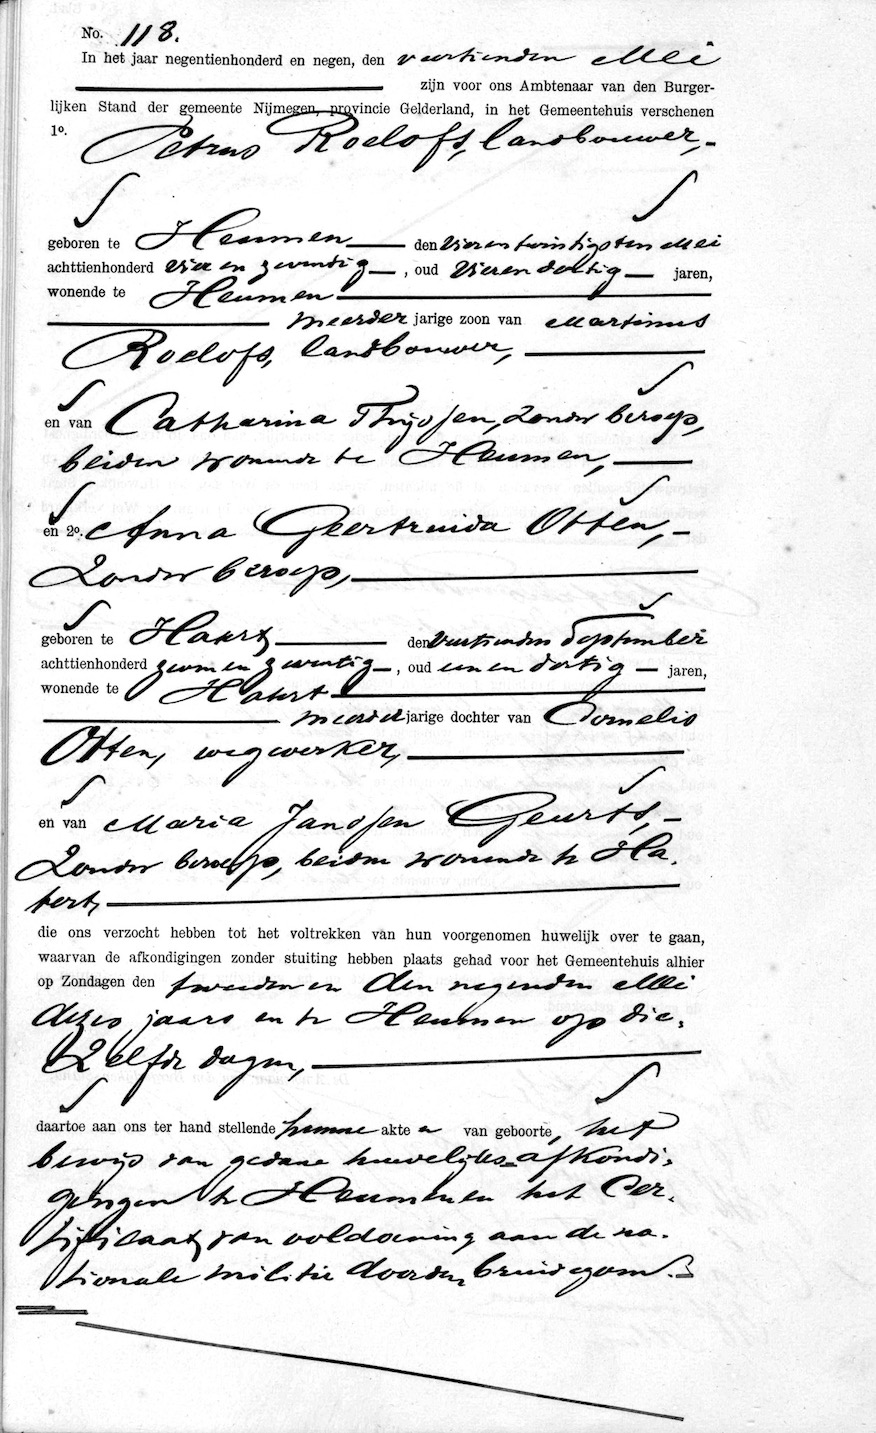 No. 118.
In het jaar negentienhonderd en negen, den veertienden Mei
zijn voor ons Ambtenaar van den Burger-
lijken Stand der gemeente Nijmegen, provincie Gelderland, in het Gemeentehuis verschenen
1º. Petrus Roelofs, landbouwer,
geboren te Heumen den vierentwintigsten Mei
achttienhonderd vier en zeventig, oud vieren dertig jaren,
wonende te Heumen
meerder jarige zoon van Martinus
Roelofs, landbouwer,
en van Catharina Thijssen, zonder beroep,
beiden wonende te Heumen,
en 2º. Anna Geertruida Otten,
zonder beroep,
geboren te Hatert den veertienden September
achttienhonderd zeven en zeventig, oud een en dertig jaren,
wonende te Hatert
meerder jarige dochter van Cornelis
Otten, wegwerker,
en van Maria Janssen Geurts,
zonder beroep, beiden wonende te Ha-
tert,
die ons verzocht hebben tot het voltrekken van hun voorgenomen huwelijk over te gaan,
waarvan de afkondigingen zonder stuiting hebben plaats gehad voor het Gemeentehuis alhier
op Zondagen den tweeden en den negenden Mei
dezes jaars en te Heumen op die-
zelfde dagen,
daartoe aan ons ter hand stellende hunne akte n van geboorte, het
bewijs van gedane huwelijks-afkondi-
gingen te Heumen en het Cer-
tificaat van voldoening aan de na-
tionale militie door den bruidegom.